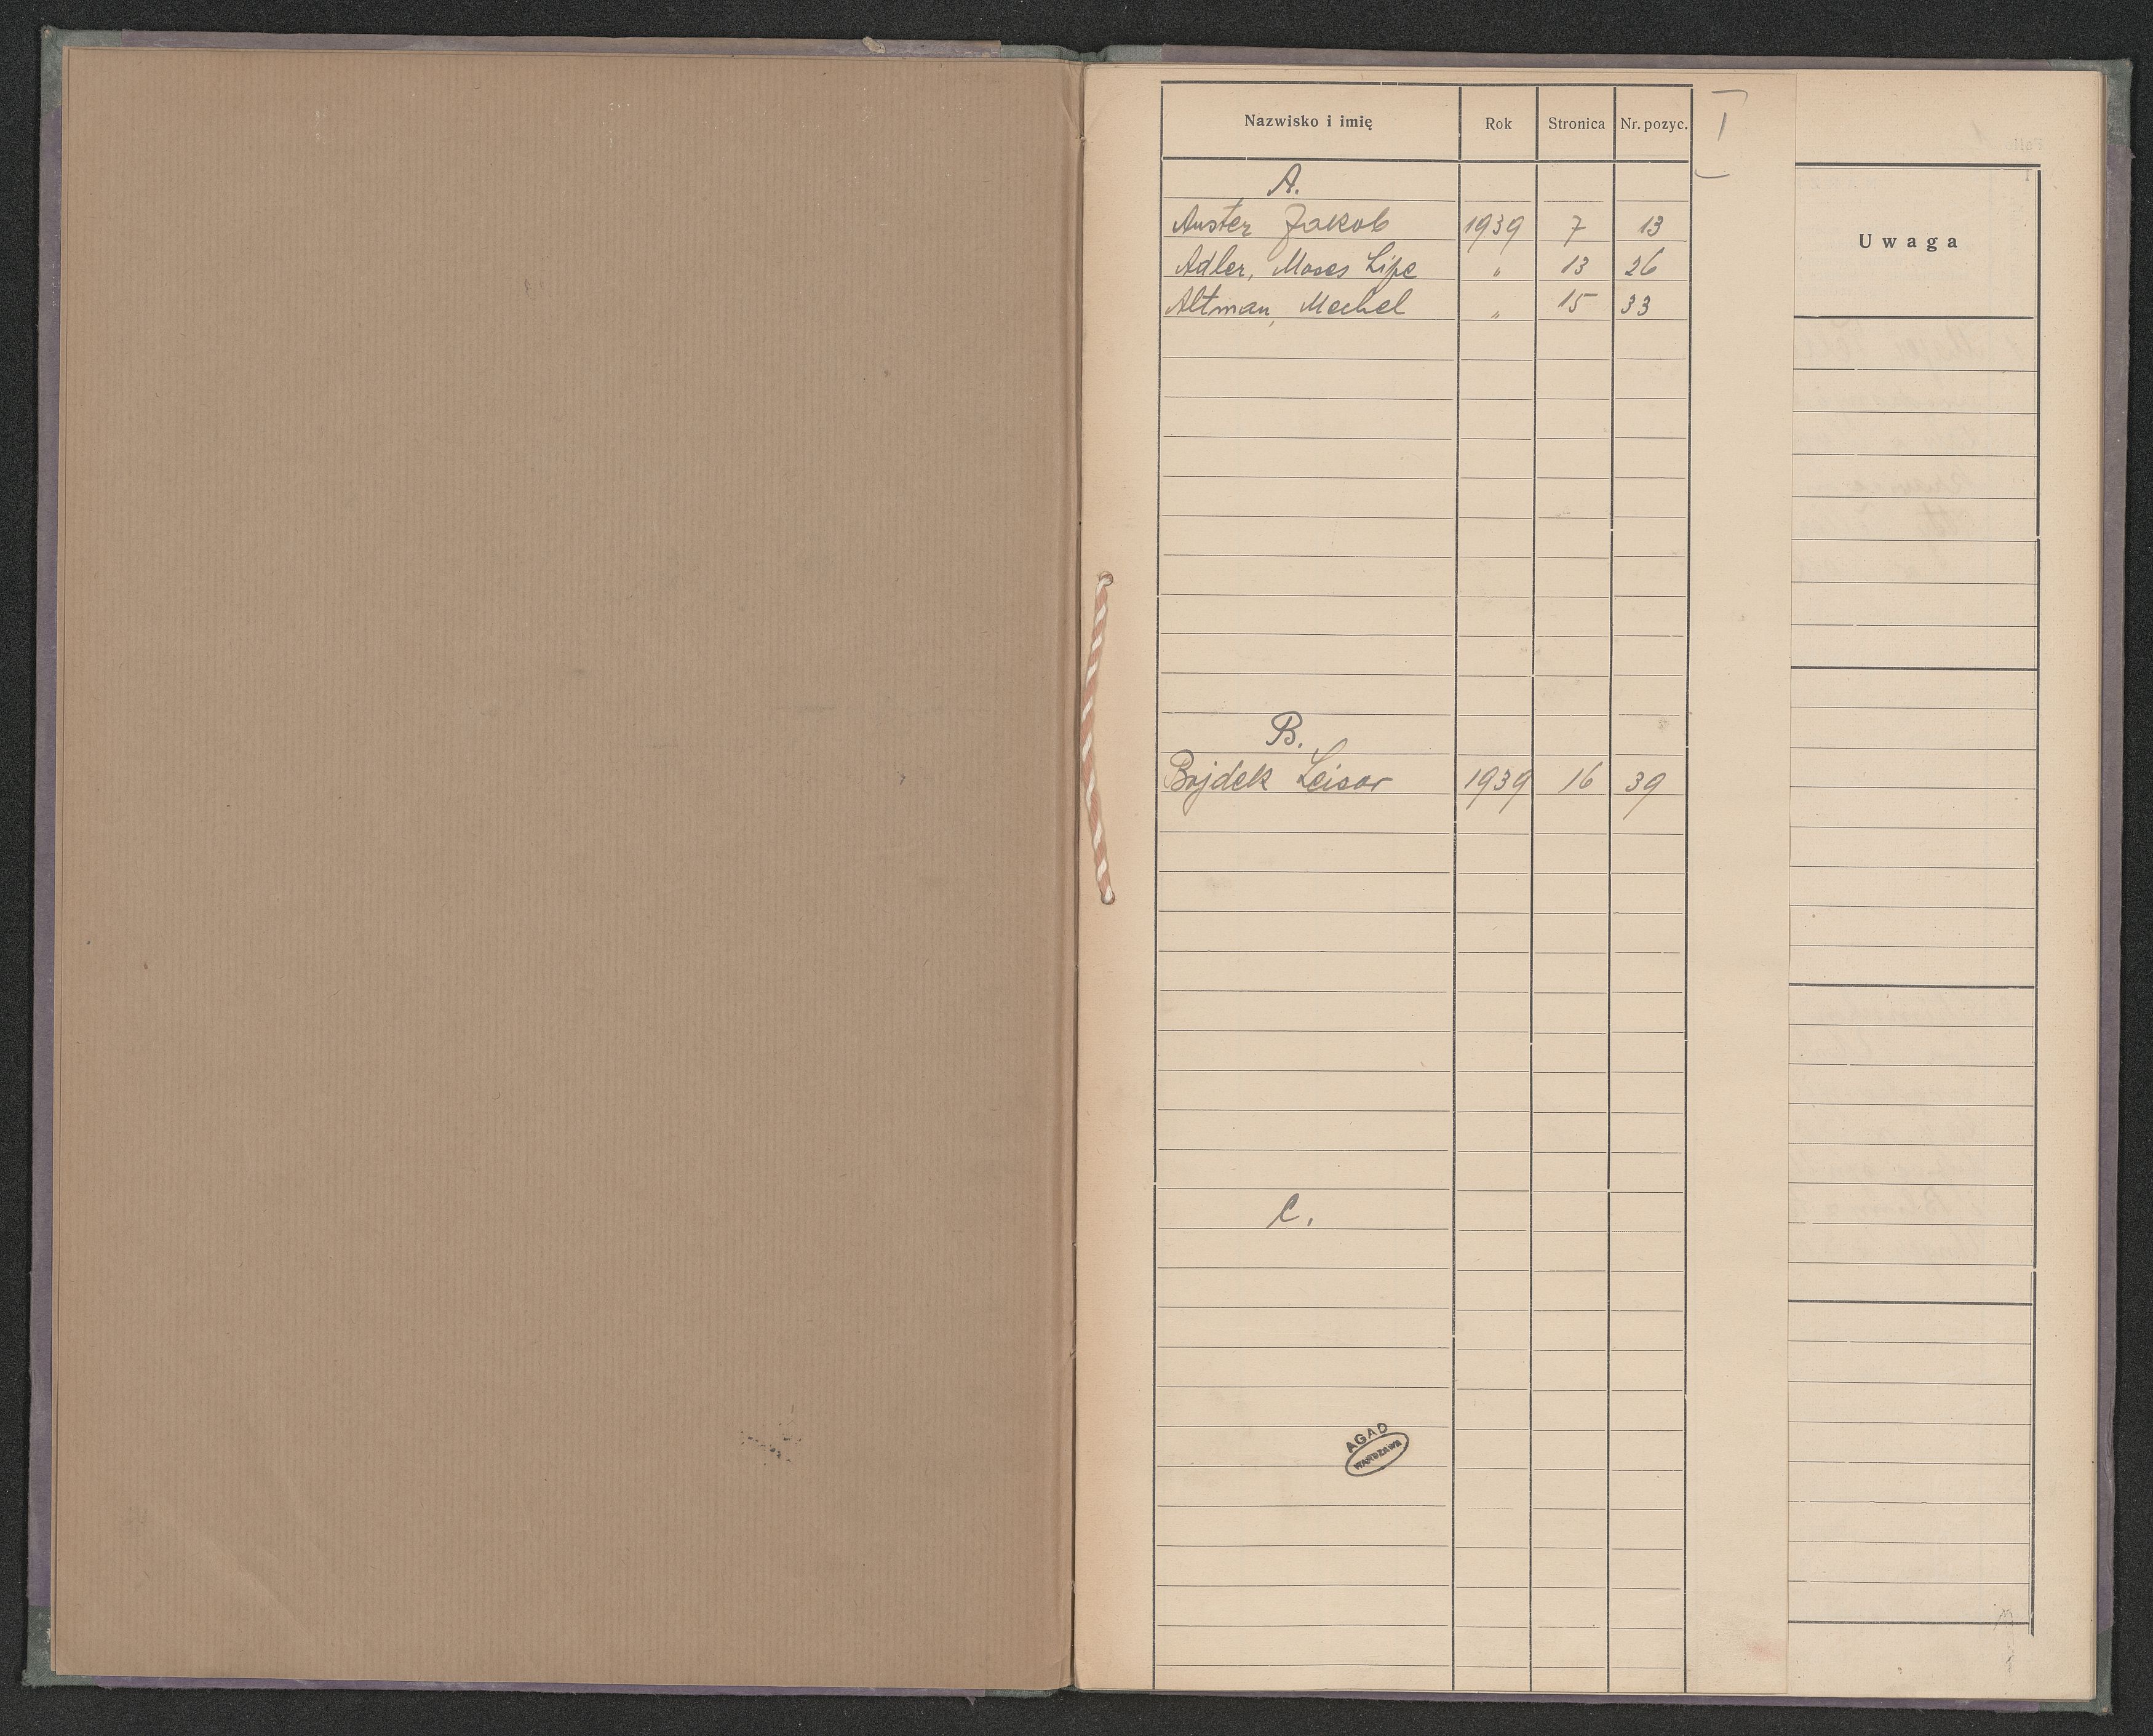 Nazwisko i imię Rok Stronica Nr. pozyc. I
A.
Auster Jakob 1939 7 13
Adler, Moses Lipe " 13 26
Altman, Mechel " 15 33
B.
Bojdek Leisor 1939 16 39
C.
AGAD
WARSZAWA
Uwaga